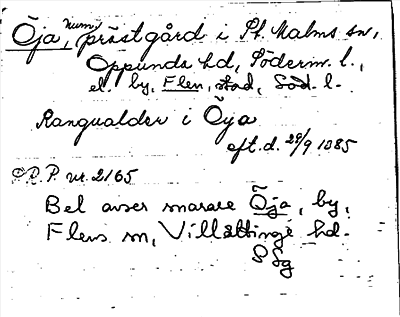 Öja, numj prästgård i St. Malms sn,
Oppunda hd, Söderm. l.,
el. by, Flen, stad, Söd. l.
Rangualder i Öya
eft. d. 29/9 1385
SRP nr. 2165
Bel avser snarare Öja, by,
Flens sn, Villåttinge hd.